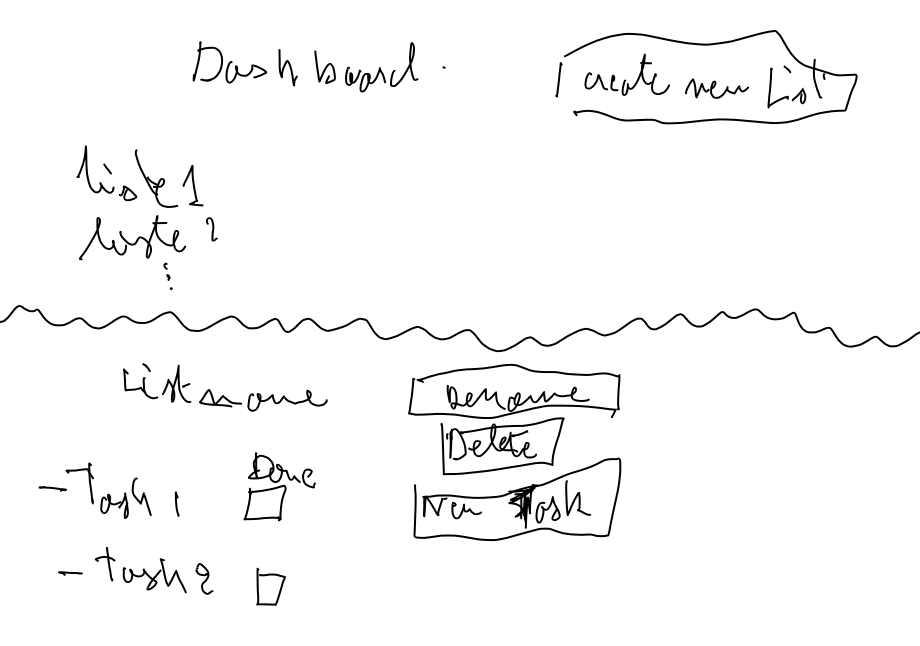 Dashboard.
create new List
liste 1
liste 2
⋮
List name
Rename
Delete
Done
- Task 1
New Task
- Task 2